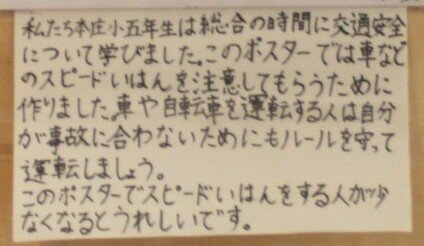 私たち本庄小五年生は総合の時間に交通安全
について学びました。このポスターでは車など
のスピードいはんを、注意してもらうために
作りました。車や自転車を運転する人は自分
が事故に合わないためにもルールを守って
運転しましょう。
このポスターでスピードいはんをする人が少
なくなるとうれしいです。